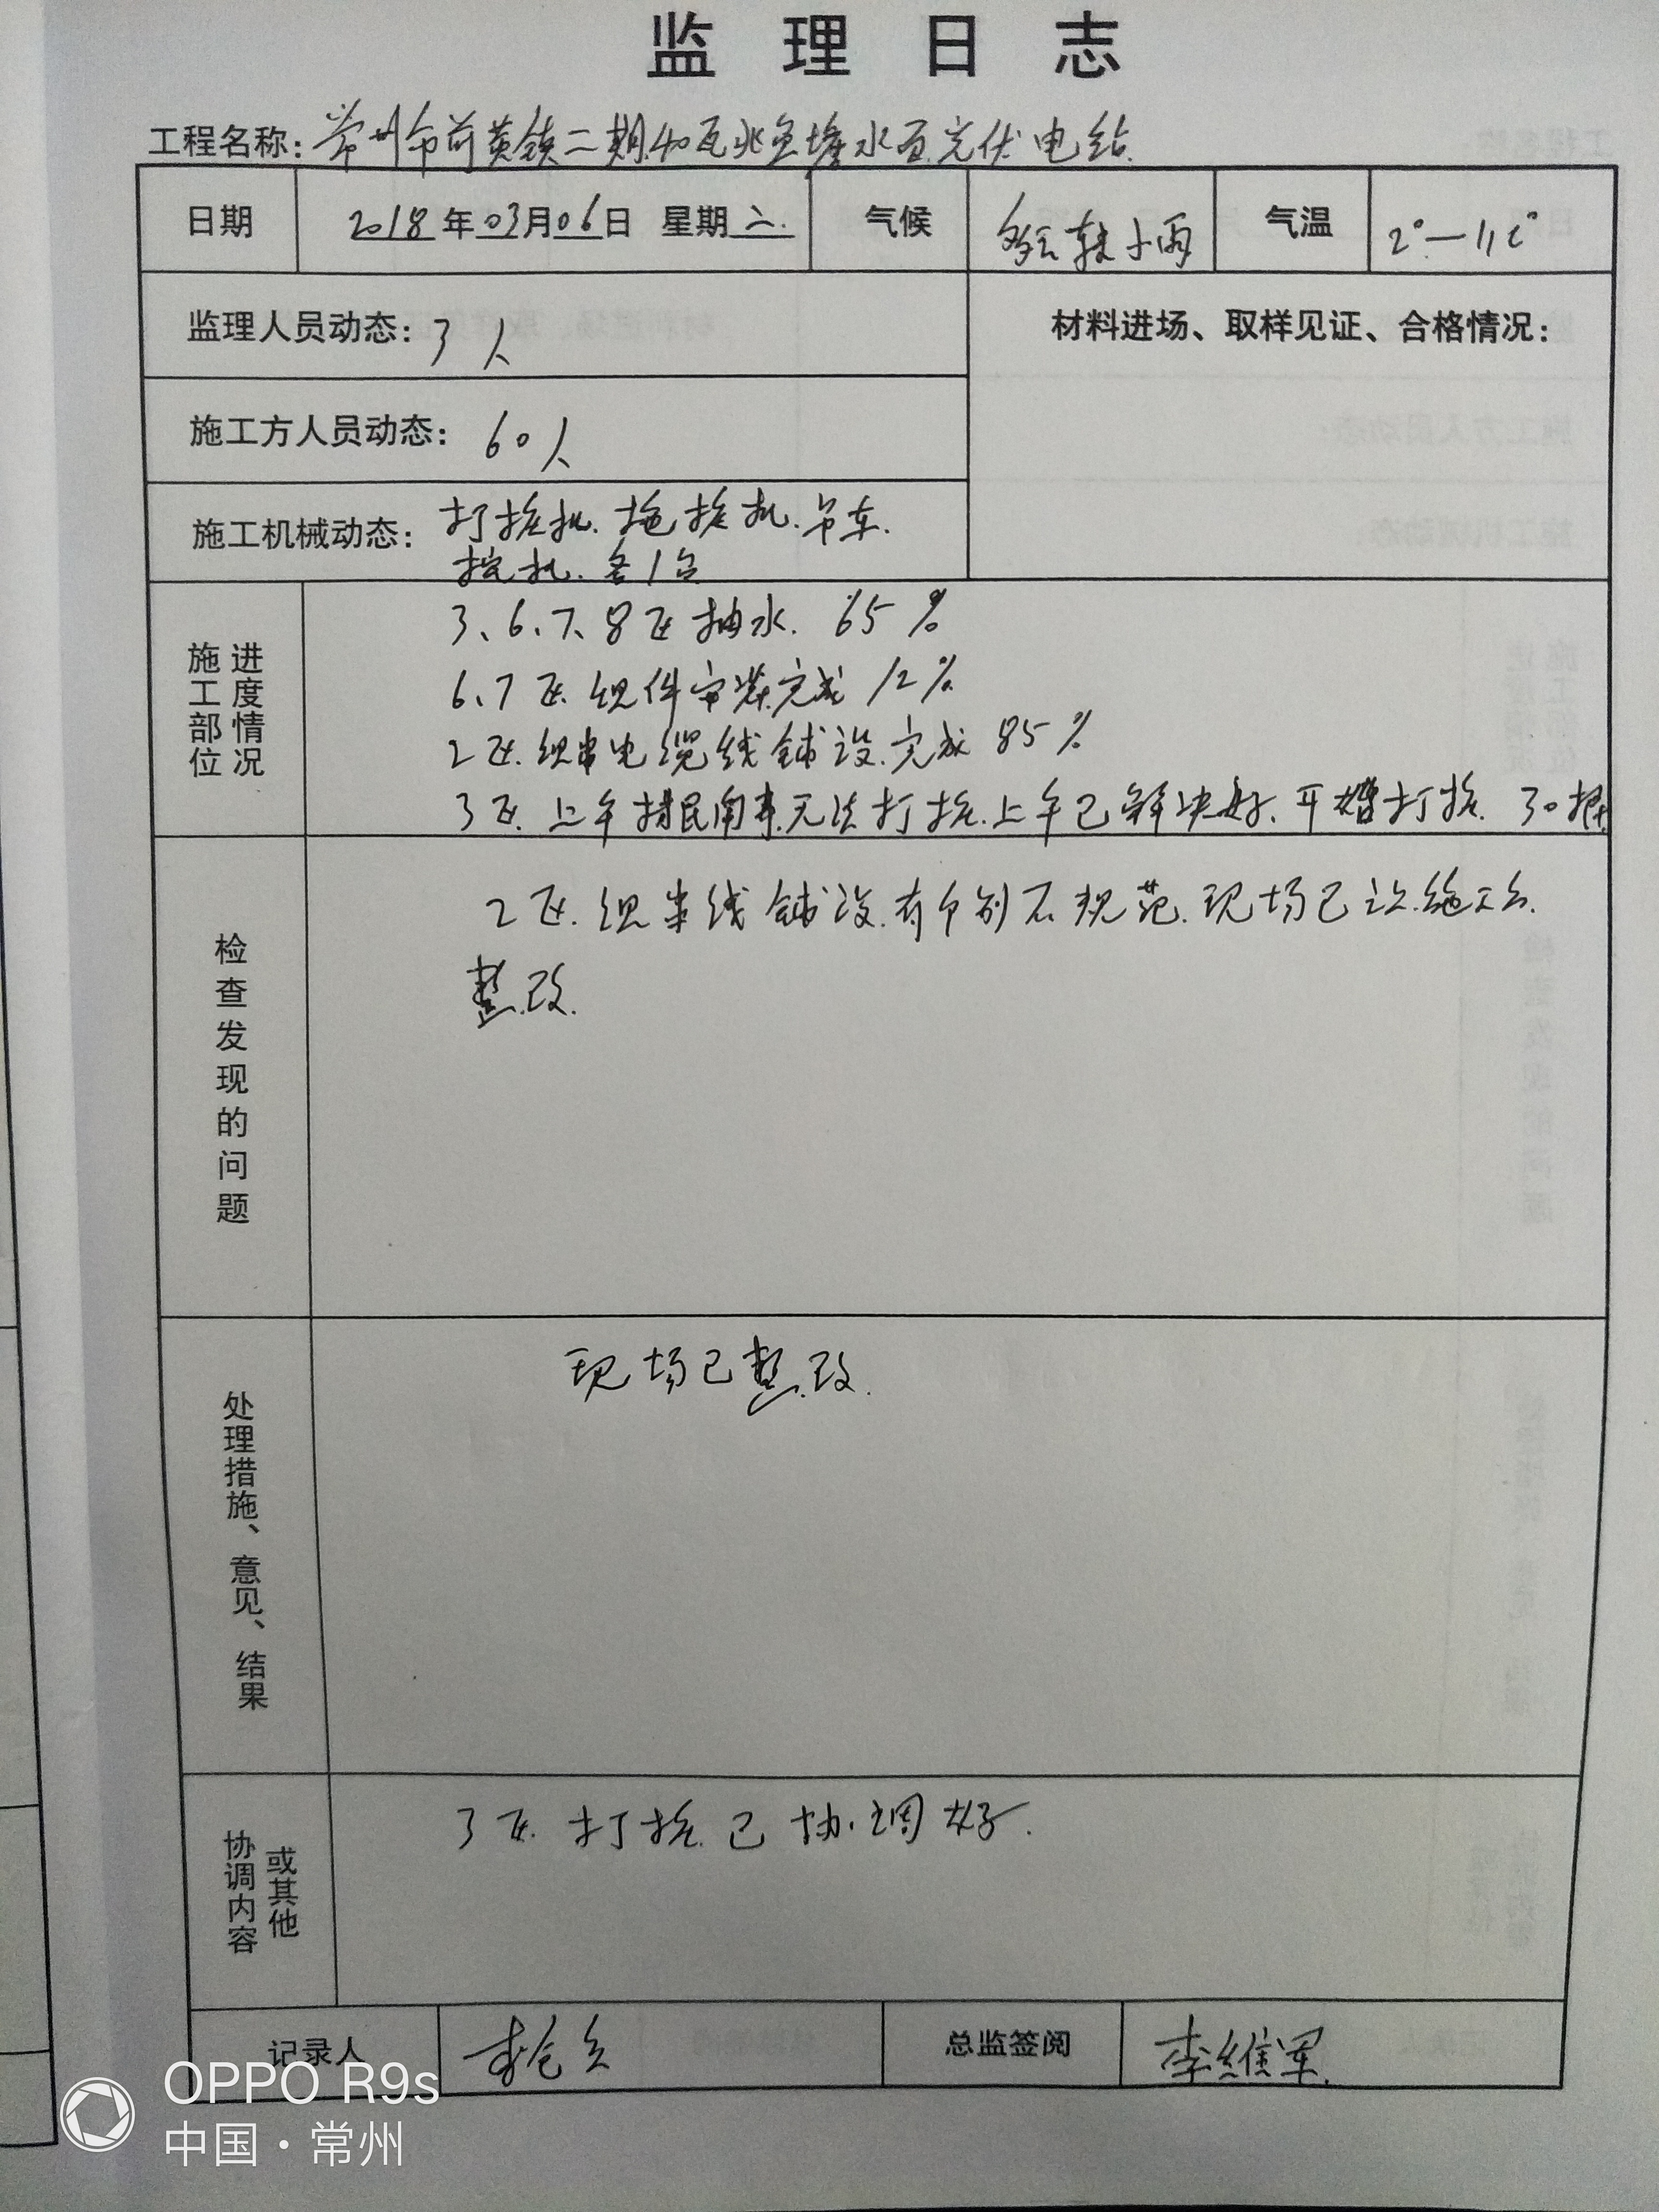 监理日志
工程名称：常州市前黄镇二期40瓦兆鱼塘水面光伏电站
日期 2018年03月06日 星期二 气候 多云转小雨 气温 2°—11c°
监理人员动态：3人 材料进场、取样见证、合格情况：
施工方人员动态：60人
施工机械动态：打桩机.拖桩机.吊车.
挖机.各1台
施工部位 进度情况
3、6、7、8区抽水.65%
6、7区.组件安装完成12%
2区.组串电缆线铺设.完成85%
3区.上午 民闹事.无法打桩.上午已解决好、开始打桩.30根
检查发现的问题
2区.组串线铺设.有个别不规范.现场已让施工
整改.
处理措施、意见、结果
现场已整改.
协调内容 或其他
3区.打桩已协调好.
记录人 总监签阅 李维军.
OPPO R9s
中国·常州